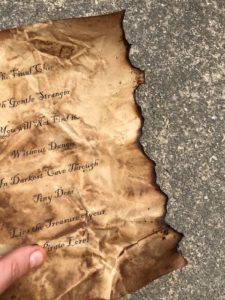 The Final Clue
Oh Gentle Stranger
You will Not Find it
Without Danger
In Darkest Cave Through
Tiny Door
Lies the Treasure of your
Pirate Lore!